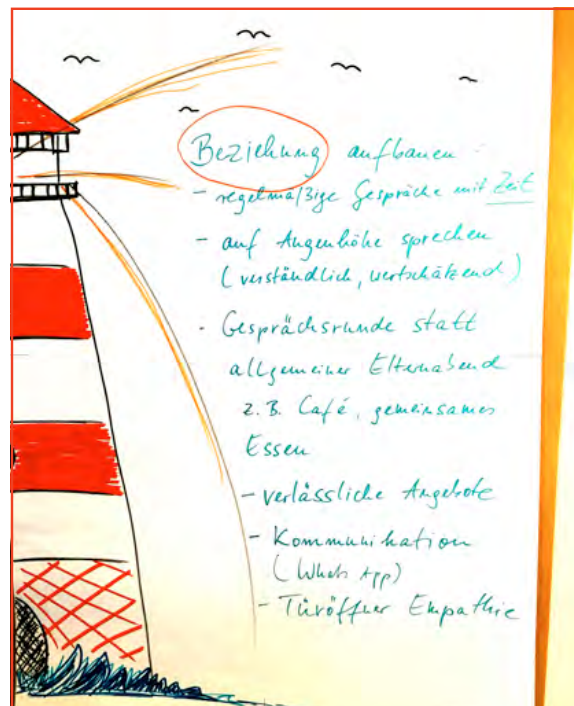 Beziehung aufbauen :
- regelmäßige Gespräche mit Zeit
- auf Augenhöhe sprechen
(verständlich, wertschätzend)
- Gesprächsrunde statt
allgemeiner Elternabend
z. B. Café, gemeinsames
Essen
- verlässliche Angebote
- Kommunikation
(Whats App)
- Türöffner Empathie